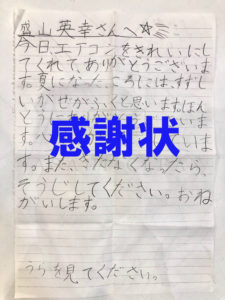 盛山英幸さんへ☆彡
今日、エアコンをきれいにし
てくれて、ありがとうございま
す。夏になったころには、すずし
いかぜがふくと思います。ほん
とうに
感謝状
す。また、きたなくなったら、
そうじしてください。おね
がいします。
うらを見てください。